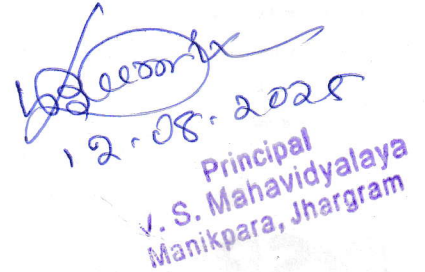 12.08.2025
Principal
V. S. Mahavidyalaya
Manikpara, Jhargram